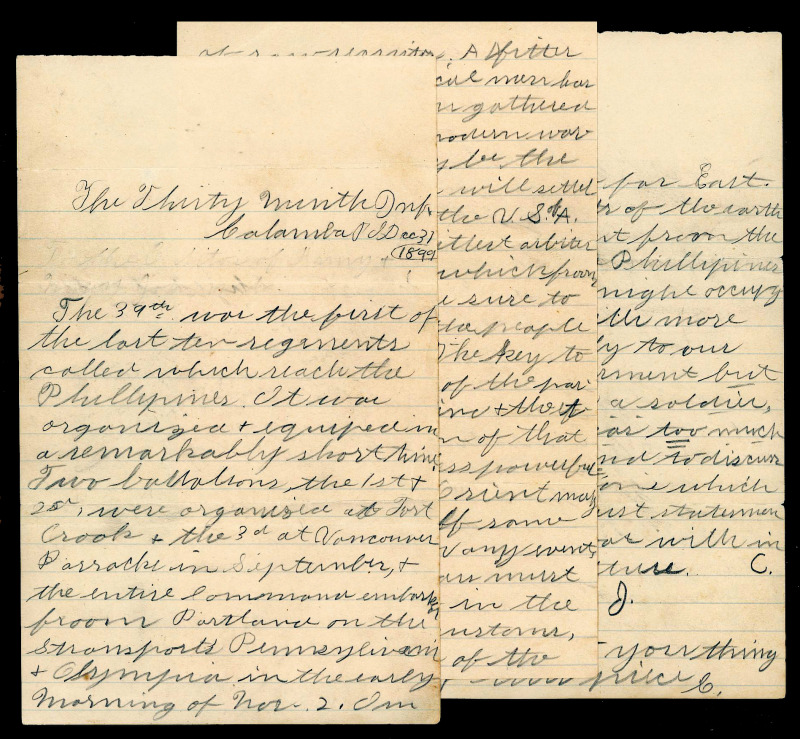 The Thirty Ninth Inf.
Calamba P I Dec 31
1899
The 39th was the first of
the last ten regiments
called which reach the
Phillipines. It was
organized & equiped in
a remarkably short time
Two battalions, the 1st &
2d, were organized at Fort
Crook & the 3d at Vancouver
Barracks in September, &
the entire command embarked
from Portland on the
transports Pennsylivania
& Olympia in the early
morning of Nov. 2. Im
A fitter
men has
gathered
modern war
be the
will settl
the U.S. of A.
ittlest arbiter
which from
sure to
people
The key to
of the
n of that
ss powerful
Orient may
ff some
any events
must
in the
ustoms,
of the
far East.
of the earth
from the
Phillipines
might occupy
with more
ly to our
rnment but
a soldier,
too much
nd to discuss
one which
ust statemen
with in
ture. C.
J.
you thing
piece C.